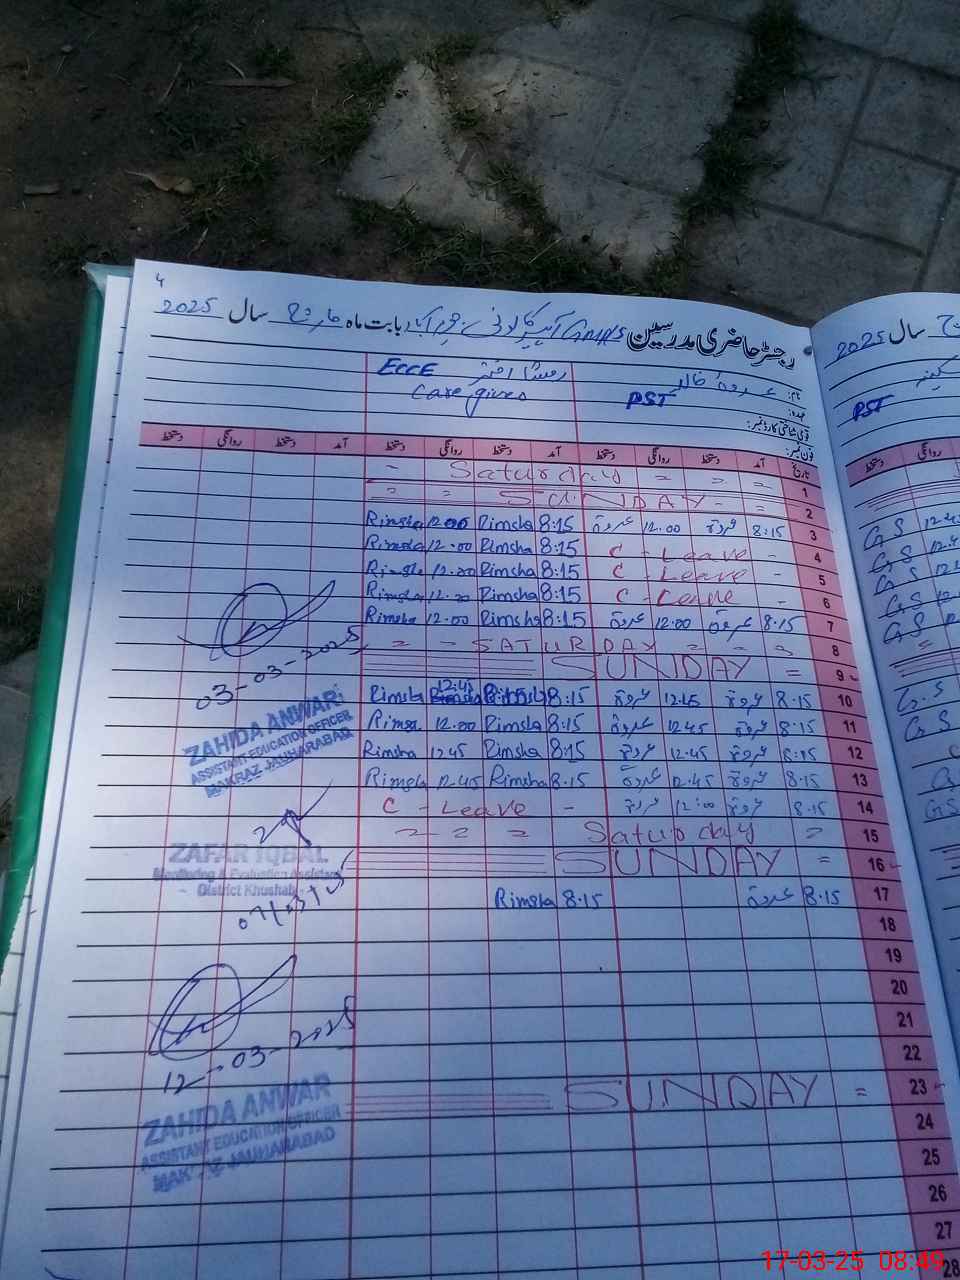 4
رجسٹر حاضری مدرسین GMPS کالونی جوہر آباد بابت ماہ مارچ سال 2025
نام: عروۃ خالد رمشا اختر ECCE
عہدہ: PST Care giver
قومی شناختی کارڈ نمبر:
فون نمبر:
تاریخ آمد دستخط روانگی دستخط آمد دستخط روانگی دستخط آمد دستخط روانگی دستخط
1 = = = Saturday -
2 = - SUNDAY = =
3 8:15 عروۃ 12:00 عروۃ 8:15 Rimsha 12:00 Rimsha
4 - C - Leave 8:15 Rimsha 12:00 Rimsha
5 - C - Leave 8:15 Rimsha 12:00 Rimsha
6 - C - Leave 8:15 Rimsha 12:00 Rimsha
7 8:15 عروۃ 12:00 عروۃ 8:15 Rimsha 12:00 Rimsha
8 = = = SATURDAY - =
9 = SUNDAY
10 8:15 عروۃ 12:45 عروۃ 8:15 12:45 Rimsha
11 8:15 عروۃ 12:45 عروۃ 8:15 Rimsha 12:00 Rimsha
12 8:15 عروۃ 12:45 عروۃ 8:15 Rimsha 12:45 Rimsha
13 8:15 عروۃ 12:45 عروۃ 8:15 Rimsha 12:45 Rimsha
14 8:15 عروۃ 12:00 عروۃ - C - Leave
15 = Saturday = = =
16 = SUNDAY
17 8:15 عروۃ 8:15 Rimsha
18
19
20
21
22
23 = SUNDAY
24
25
26
27
28
03-03-2025
ZAHIDA ANWAR
ASSISTANT EDUCATION OFFICER
MAKRAZ JAUHARABAD
ZAFAR IQBAL
Monitoring & Evaluation Assistant
District Khushab
07/03/25
12-03-2025
ZAHIDA ANWAR
ASSISTANT EDUCATION OFFICER
MAKRAZ JAUHARABAD
سال 2025
PST
روانگی دستخط
GS 12:45
GS
GS
GS
GS
G.S
GS
GS
17-03-25 08:49